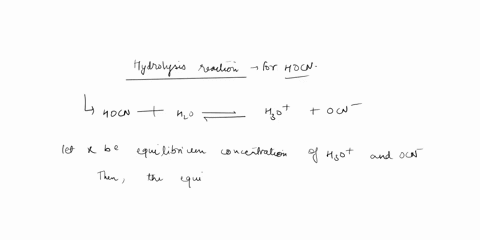 Hydrolysis reaction → for HOCN.
↳ HOCN + H₂O ⇌ H₃O⁺ + OCN⁻
let x be equilibrium concentration of H₃O⁺ and OCN⁻
Then, the equi